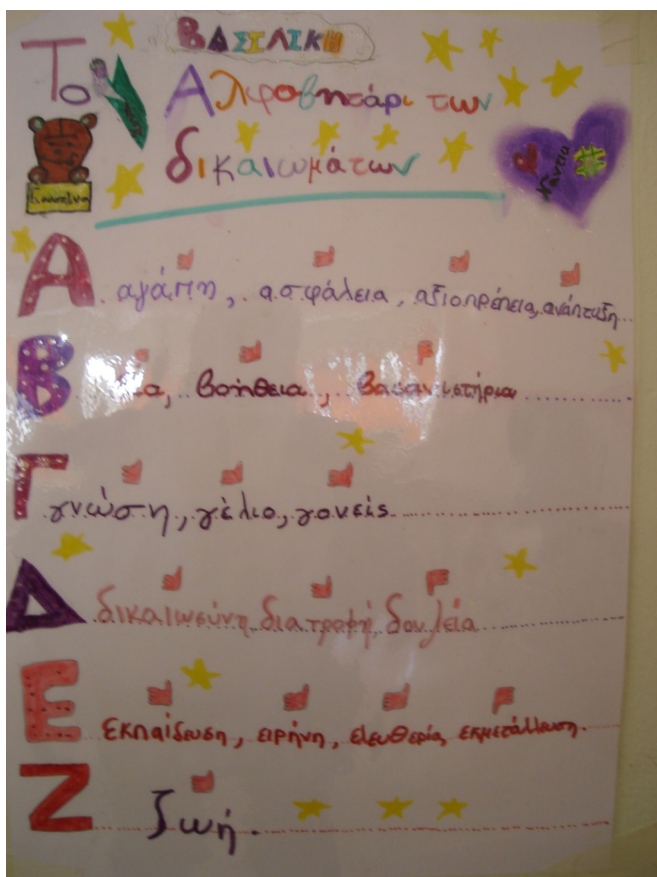 ΒΑΣΙΛΙΚΗ
Το Αλφαβητάρι των
δικαιωμάτων
Νάντια
Α αγάπη, ασφάλεια, αξιοπρέπεια, ανάπτυξη...
Β βοήθεια, βασανιστήρια
Γ γνώση, γέλιο, γονείς
Δ δικαιωσύνη, διατροφή, δουλεία
Ε εκπαίδευση, ειρήνη, ελευθερία, εκμετάλλευση.
Ζ ζωή.